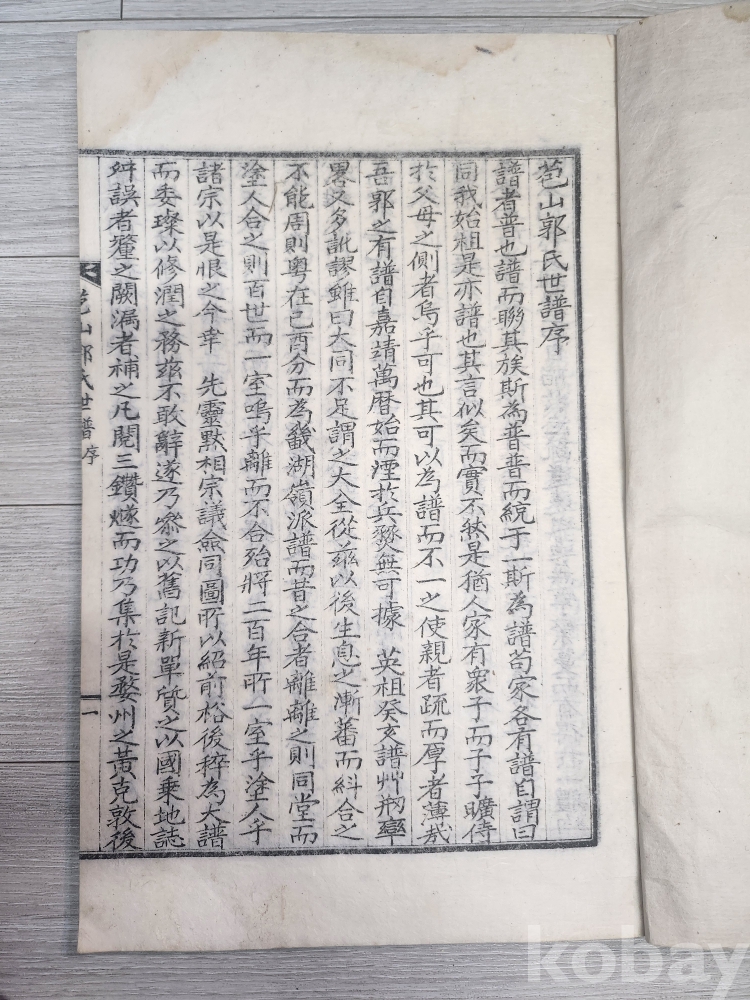 苞山郭氏世譜序
譜者普也譜而聯其族斯為普普而統于一斯為譜苟家各有譜自謂曰
同我始祖是亦譜也其言似矣而實不然是猶人家有衆子而子子曠侍
於父母之側者烏乎可也其可以為譜而不一之使親者疏而厚者薄哉
吾郭之有譜自嘉靖萬曆始而湮於兵燹無可據 英祖癸亥譜艸刱率
畧又多訛謬雖曰大同不足謂之大全從玆以後生息之漸蕃而糾合之
不能周則粤在己酉分而為畿湖嶺派譜而昔之合者離離之則同堂而
塗人合之則百世而一室嗚乎離而不合殆將二百年所一室乎塗人乎
諸宗以是恨之今幸 先靈默相宗議僉同圖所以紹前裕後稡為大譜
而委璨以修潤之務玆不敢辭遂乃叅之以舊記新單質之以國乘地誌
舛誤者釐之闕漏者補之凡閱三鑽燧而功乃集於是婺州之黃克敦後
苞山郭氏世譜
序
一
kobay